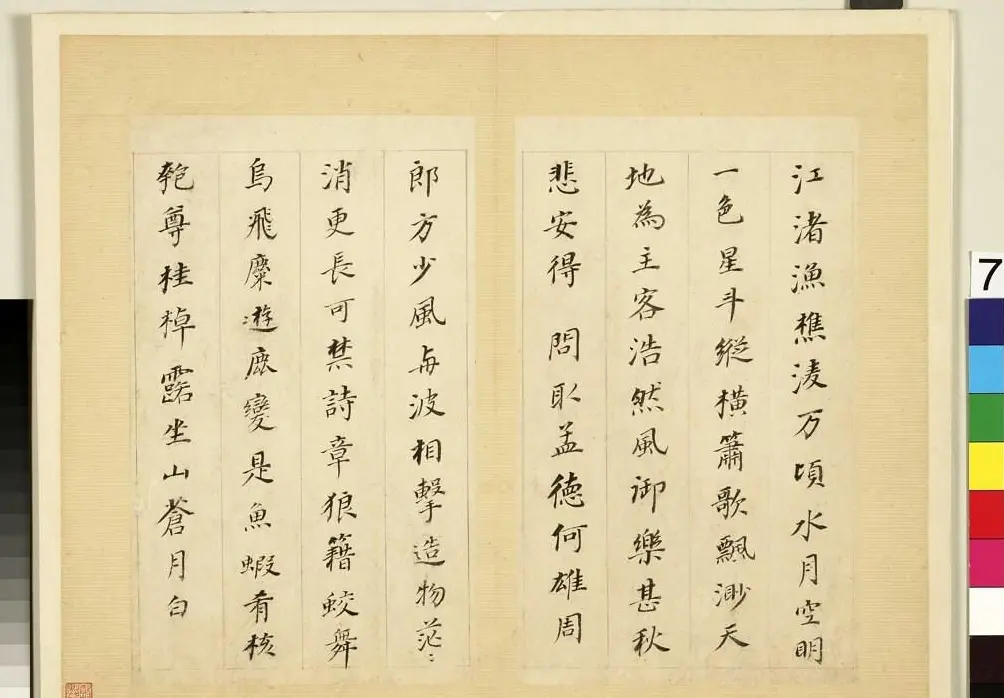 江渚漁樵淩万頃水月空明
一色星斗縱橫簫歌飄渺天
地為主客浩然風御樂甚秋
悲安得 問取孟德何雄周
郎方少風与波相擊造物茫〻
消更長可禁詩章狼籍蛟舞
烏飛麋遊鹿變是魚蝦肴核
匏尊桂棹露坐山蒼月白
7